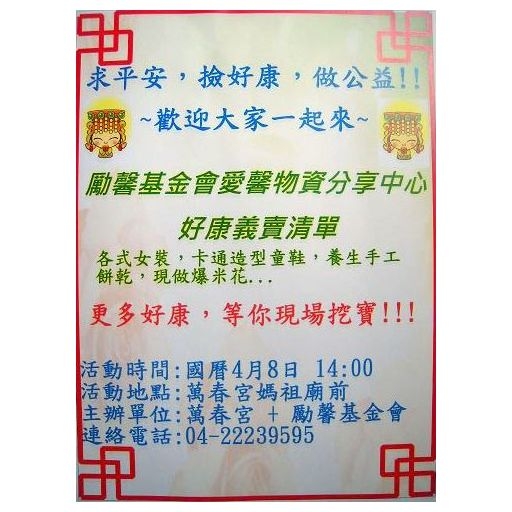 求平安，撿好康，做公益!!
~歡迎大家一起來~
勵馨基金會愛馨物資分享中心
好康義賣清單
各式女裝，卡通造型童鞋，養生手工
餅乾，現做爆米花...
更多好康，等你現場挖寶!!!
活動時間:國曆4月8日 14:00
活動地點:萬春宮媽祖廟前
主辦單位:萬春宮 + 勵馨基金會
連絡電話:04-22239595